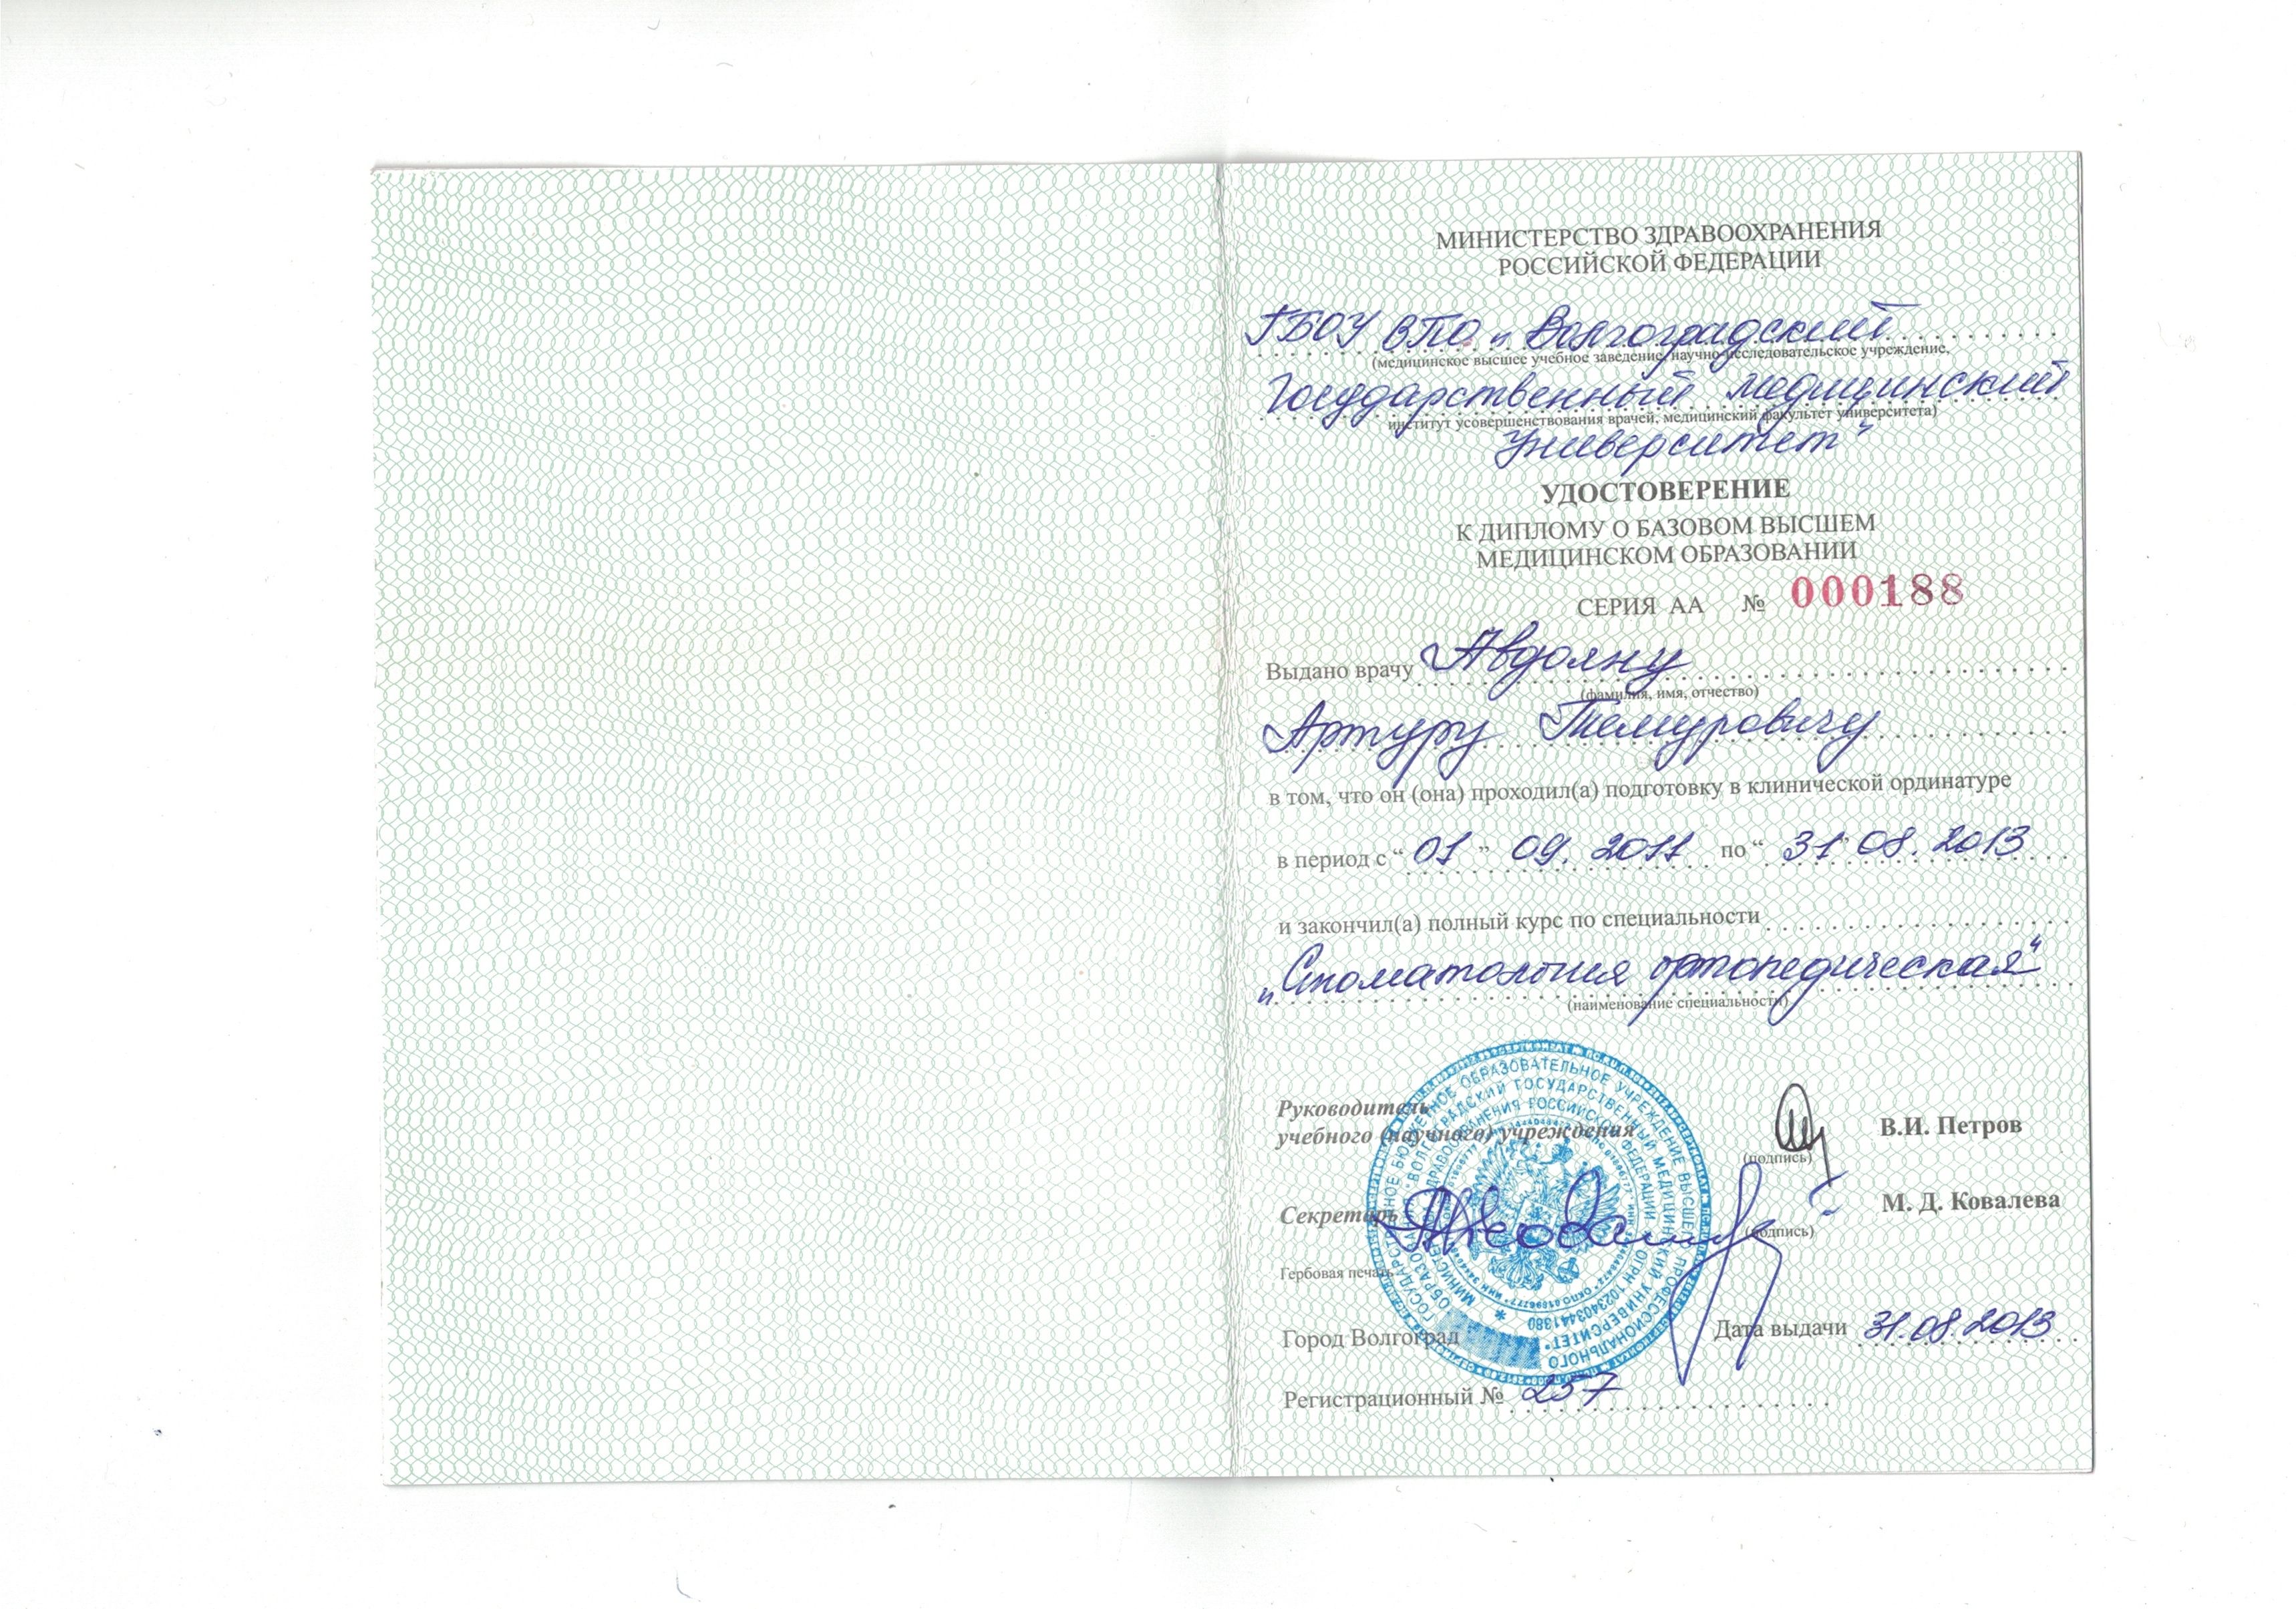 МИНИСТЕРСТВО ЗДРАВООХРАНЕНИЯ
РОССИЙСКОЙ ФЕДЕРАЦИИ
ГБОУ ВПО „Волгоградский
(медицинское высшее учебное заведение, научно-исследовательское учреждение,
Государственный медицинский
институт усовершенствования врачей, медицинский факультет университета)
Университет"
УДОСТОВЕРЕНИЕ
К ДИПЛОМУ О БАЗОВОМ ВЫСШЕМ
МЕДИЦИНСКОМ ОБРАЗОВАНИИ
СЕРИЯ АА № 000188
Выдано врачу Авдояну
(фамилия, имя, отчество)
Артуру Темуровичу
в том, что он (она) проходил(а) подготовку в клинической ординатуре
в период с “ 01 ” 09. 2011 по “ 31 ” 08. 2013
и закончил(а) полный курс по специальности
„Стоматология ортопедическая"
(наименование специальности)
Руководитель
учебного (научного) учреждения В.И. Петров
(подпись)
Секретарь М. Д. Ковалева
(подпись)
Гербовая печать
Город Волгоград Дата выдачи 31.08.2013
Регистрационный № 257
ГОСУДАРСТВЕННОЕ БЮДЖЕТНОЕ ОБРАЗОВАТЕЛЬНОЕ УЧРЕЖДЕНИЕ ВЫСШЕГО ПРОФЕССИОНАЛЬНОГО
ОБРАЗОВАНИЯ "ВОЛГОГРАДСКИЙ ГОСУДАРСТВЕННЫЙ МЕДИЦИНСКИЙ УНИВЕРСИТЕТ"
МИНИСТЕРСТВА ЗДРАВООХРАНЕНИЯ РОССИЙСКОЙ ФЕДЕРАЦИИ * ОГРН 1023403441380